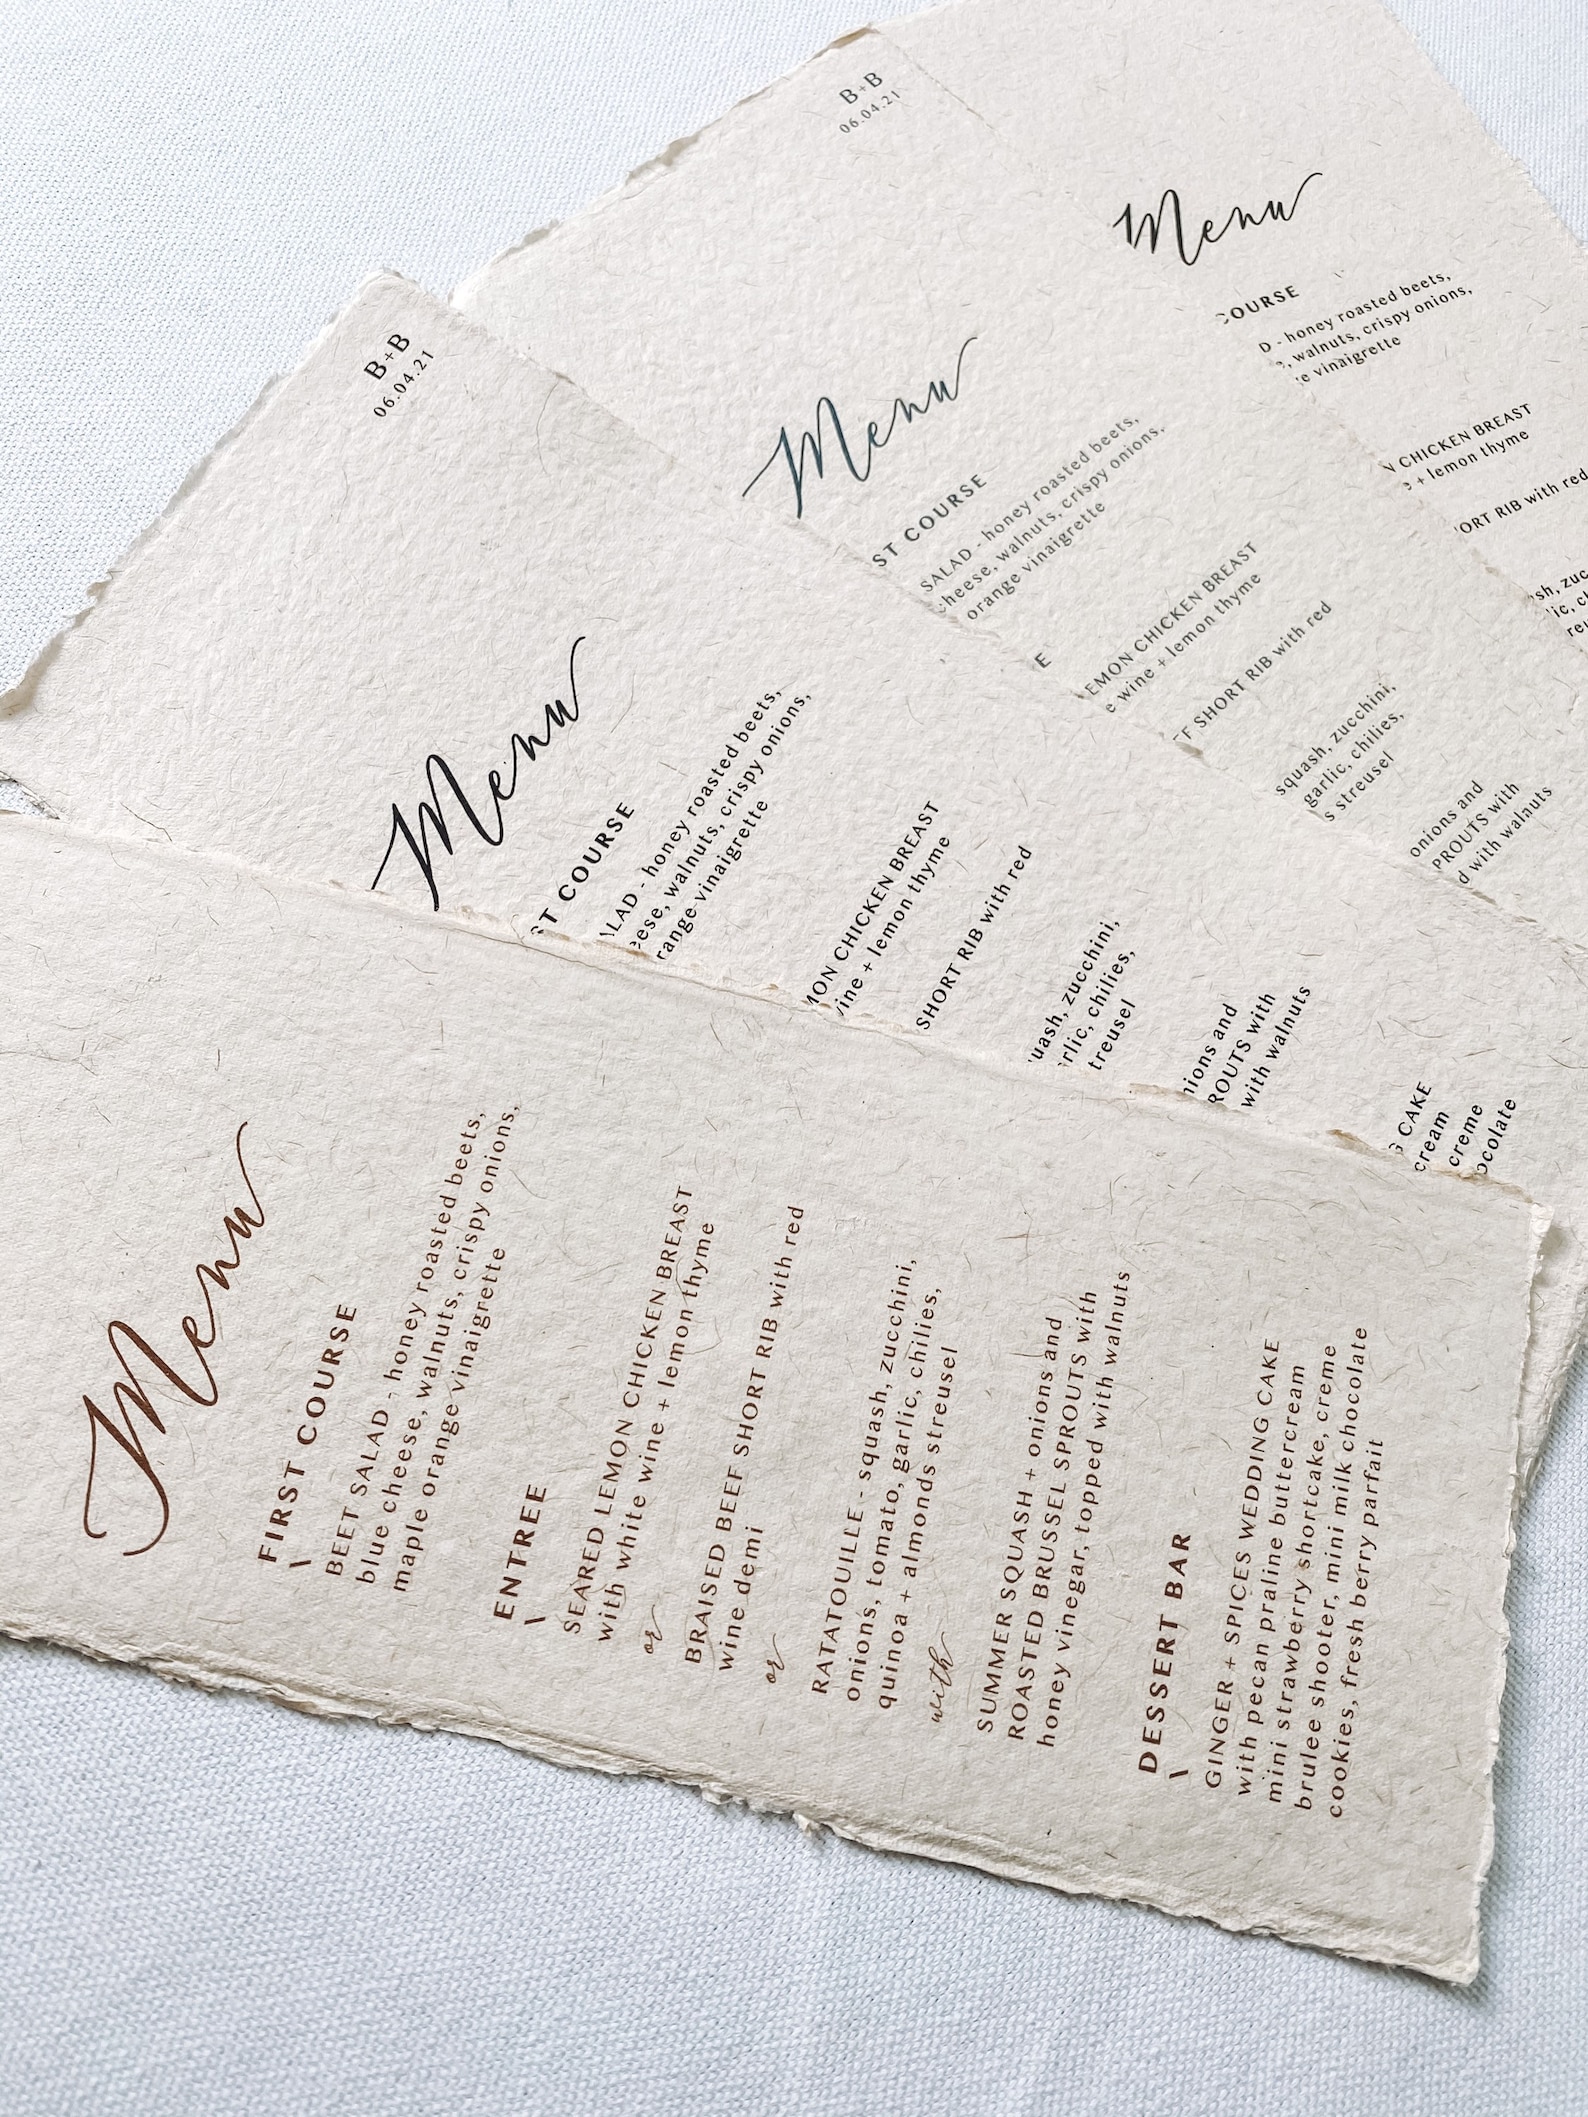 Menu
FIRST COURSE
\
BEET SALAD - honey roasted beets,
blue cheese, walnuts, crispy onions,
maple orange vinaigrette
ENTREE
\
SEARED LEMON CHICKEN BREAST
with white wine + lemon thyme
or
BRAISED BEEF SHORT RIB with red
wine demi
or
RATATOUILLE - squash, zucchini,
onions, tomato, garlic, chilies,
quinoa + almonds streusel
with
SUMMER SQUASH + onions and
ROASTED BRUSSEL SPROUTS with
honey vinegar, topped with walnuts
DESSERT BAR
\
GINGER + SPICES WEDDING CAKE
with pecan praline buttercream
mini strawberry shortcake, creme
brulee shooter, mini milk chocolate
cookies, fresh berry parfait
B+B
06.04.21
Menu
ST COURSE
LAD - honey roasted beets,
eese, walnuts, crispy onions,
range vinaigrette
MON CHICKEN BREAST
wine + lemon thyme
SHORT RIB with red
uash, zucchini,
rlic, chilies,
treusel
nions and
ROUTS with
with walnuts
G CAKE
cream
creme
ocolate
B+B
06.04.21
Menu
ST COURSE
SALAD - honey roasted beets,
cheese, walnuts, crispy onions,
orange vinaigrette
E
EMON CHICKEN BREAST
e wine + lemon thyme
EF SHORT RIB with red
squash, zucchini,
garlic, chilies,
s streusel
onions and
PROUTS with
d with walnuts
Menu
COURSE
D - honey roasted beets,
e, walnuts, crispy onions,
e vinaigrette
N CHICKEN BREAST
e + lemon thyme
ORT RIB with red